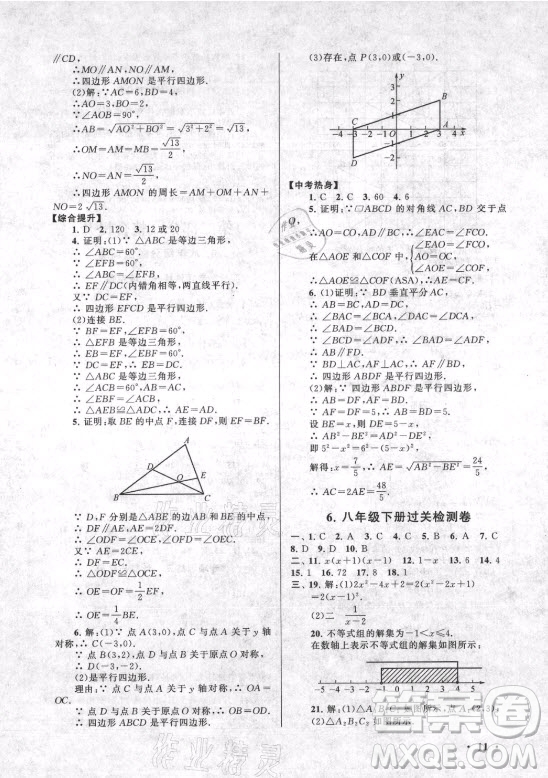 ∥CD.
∴MO∥AN，NO∥AM.
∴四边形AMON是平行四边形.
(2)解：∵AC=6，BD=4，
∴AO=3，BO=2.
又∵∠AOB=90°，
∴AB=√(AO²+BO²)=√(3²+2²)=√13.
∴OM=AM=MB=√13/2.
∴NO=AN=√13/2.
∴四边形AMON的周长=AM+OM+AN+
NO=2√13.
【综合提升】
1. D 2. 120 3. 12或20
4. 证明：(1)∵△ABC是等边三角形，
∴∠ABC=60°.
∵∠EFB=60°，
∴∠ABC=∠EFB.
∴EF∥DC(内错角相等，两直线平行).
∵DC=EF，
∴四边形EFCD是平行四边形.
(2)连接BE.
∵BF=EF，∠EFB=60°，
∴△EFB是等边三角形.
∴EB=EF，∠EBF=60°.
∵DC=EF，∴EB=DC.
∵△ABC是等边三角形，
∴∠ACB=60°，AB=AC.
∴∠EBF=∠ACB.
∴△AEB≌△ADC.∴AE=AD.
5. 证明：取BE的中点F，连接DF，则EF=BF.
A
D
O
E
B
C
∵D，F分别是△ABE的边AB，BE的中点，
∴DF∥AE，AE=2DF.
∴∠ODF=∠OCE，∠DFO=∠CEO.
∵AE=2CE，∴DF=CE.
∴△ODF≌△OCE.
∴OE=OF=1/2EF.
∴OE=1/4BE.
6. 解：(1)∵点A(3,0)，点C与点A关于y轴
对称，∴C(-3,0).
∵点B(3,2)，点D与点B关于原点O对称，
∴点D(-3,-2).
(2)四边形ABCD是平行四边形.
理由：∵点A与点C关于y轴对称，∴OA=
OC.
∵点B与点D关于原点O对称，∴OB=OD.
∴四边形ABCD是平行四边形.
(3)存在，点P(3,0)或(-3,0).
y
3
2
B
1
C
A
-3
O
1 2 3 4 x
-1
D
-2
【中考热身】
1. C 2. C 3. 60 4. 6
5. 证明：∵▱ABCD的对角线AC，BD交于点
O，
∴AO=CO，AD∥BC.∴∠EAC=∠FCO.
在△AOE和△COF中，{∠EAO=∠FCO，AO=CO，∠AOE=∠COF，
∴△AOE≌△COF(ASA).∴AE=CF.
6. (1)证明：∵BD垂直平分AC，
∴AB=BC，AD=DC.
∴∠BAC=∠BCA，∠DAC=∠DCA.
∴∠BAD=∠BCD.
∵∠BCD=∠ADF，∴∠BAD=∠ADF.
∴AB∥FD.
∵BD⊥AC，AF⊥AC，
∴AF∥BD.
∴四边形ABDF是平行四边形.
(2)解：∵四边形ABDF是平行四边形，
∴BD=AF=5，AB=DF=5.
设BE=x，则DE=5-x，
∴AB²-BE²=AD²-DE²，
即5²-x²=6²-(5-x)².
解得：x=7/5.∴AE=√(AB²-BE²)=24/5.
∴AC=2AE=48/5.
6. 八年级下册过关检测卷
一、1. C 2. A 3. C 4. C 5. B 6. C 7. C
8. D 9. D 10. D
二、11. x(x+1)(x-1) 12. x≠3 13. x>1 14. 4
15. 1 16. 72 17. 8 18. 1
三、19. 解：(1)
(2)二
20. 不等式组的解集为-1≤x≤4.
在数轴上表示不等式组的解集如图所示.
-5 -4 -3 -2 -1 0 1 2 3 4 5
21. 解：(1)△A₁B₁C₁如图所示，点
(2)△A₂B₂C₂如图所示
· 11 ·
作业精灵
答案圈
MXQE.COM